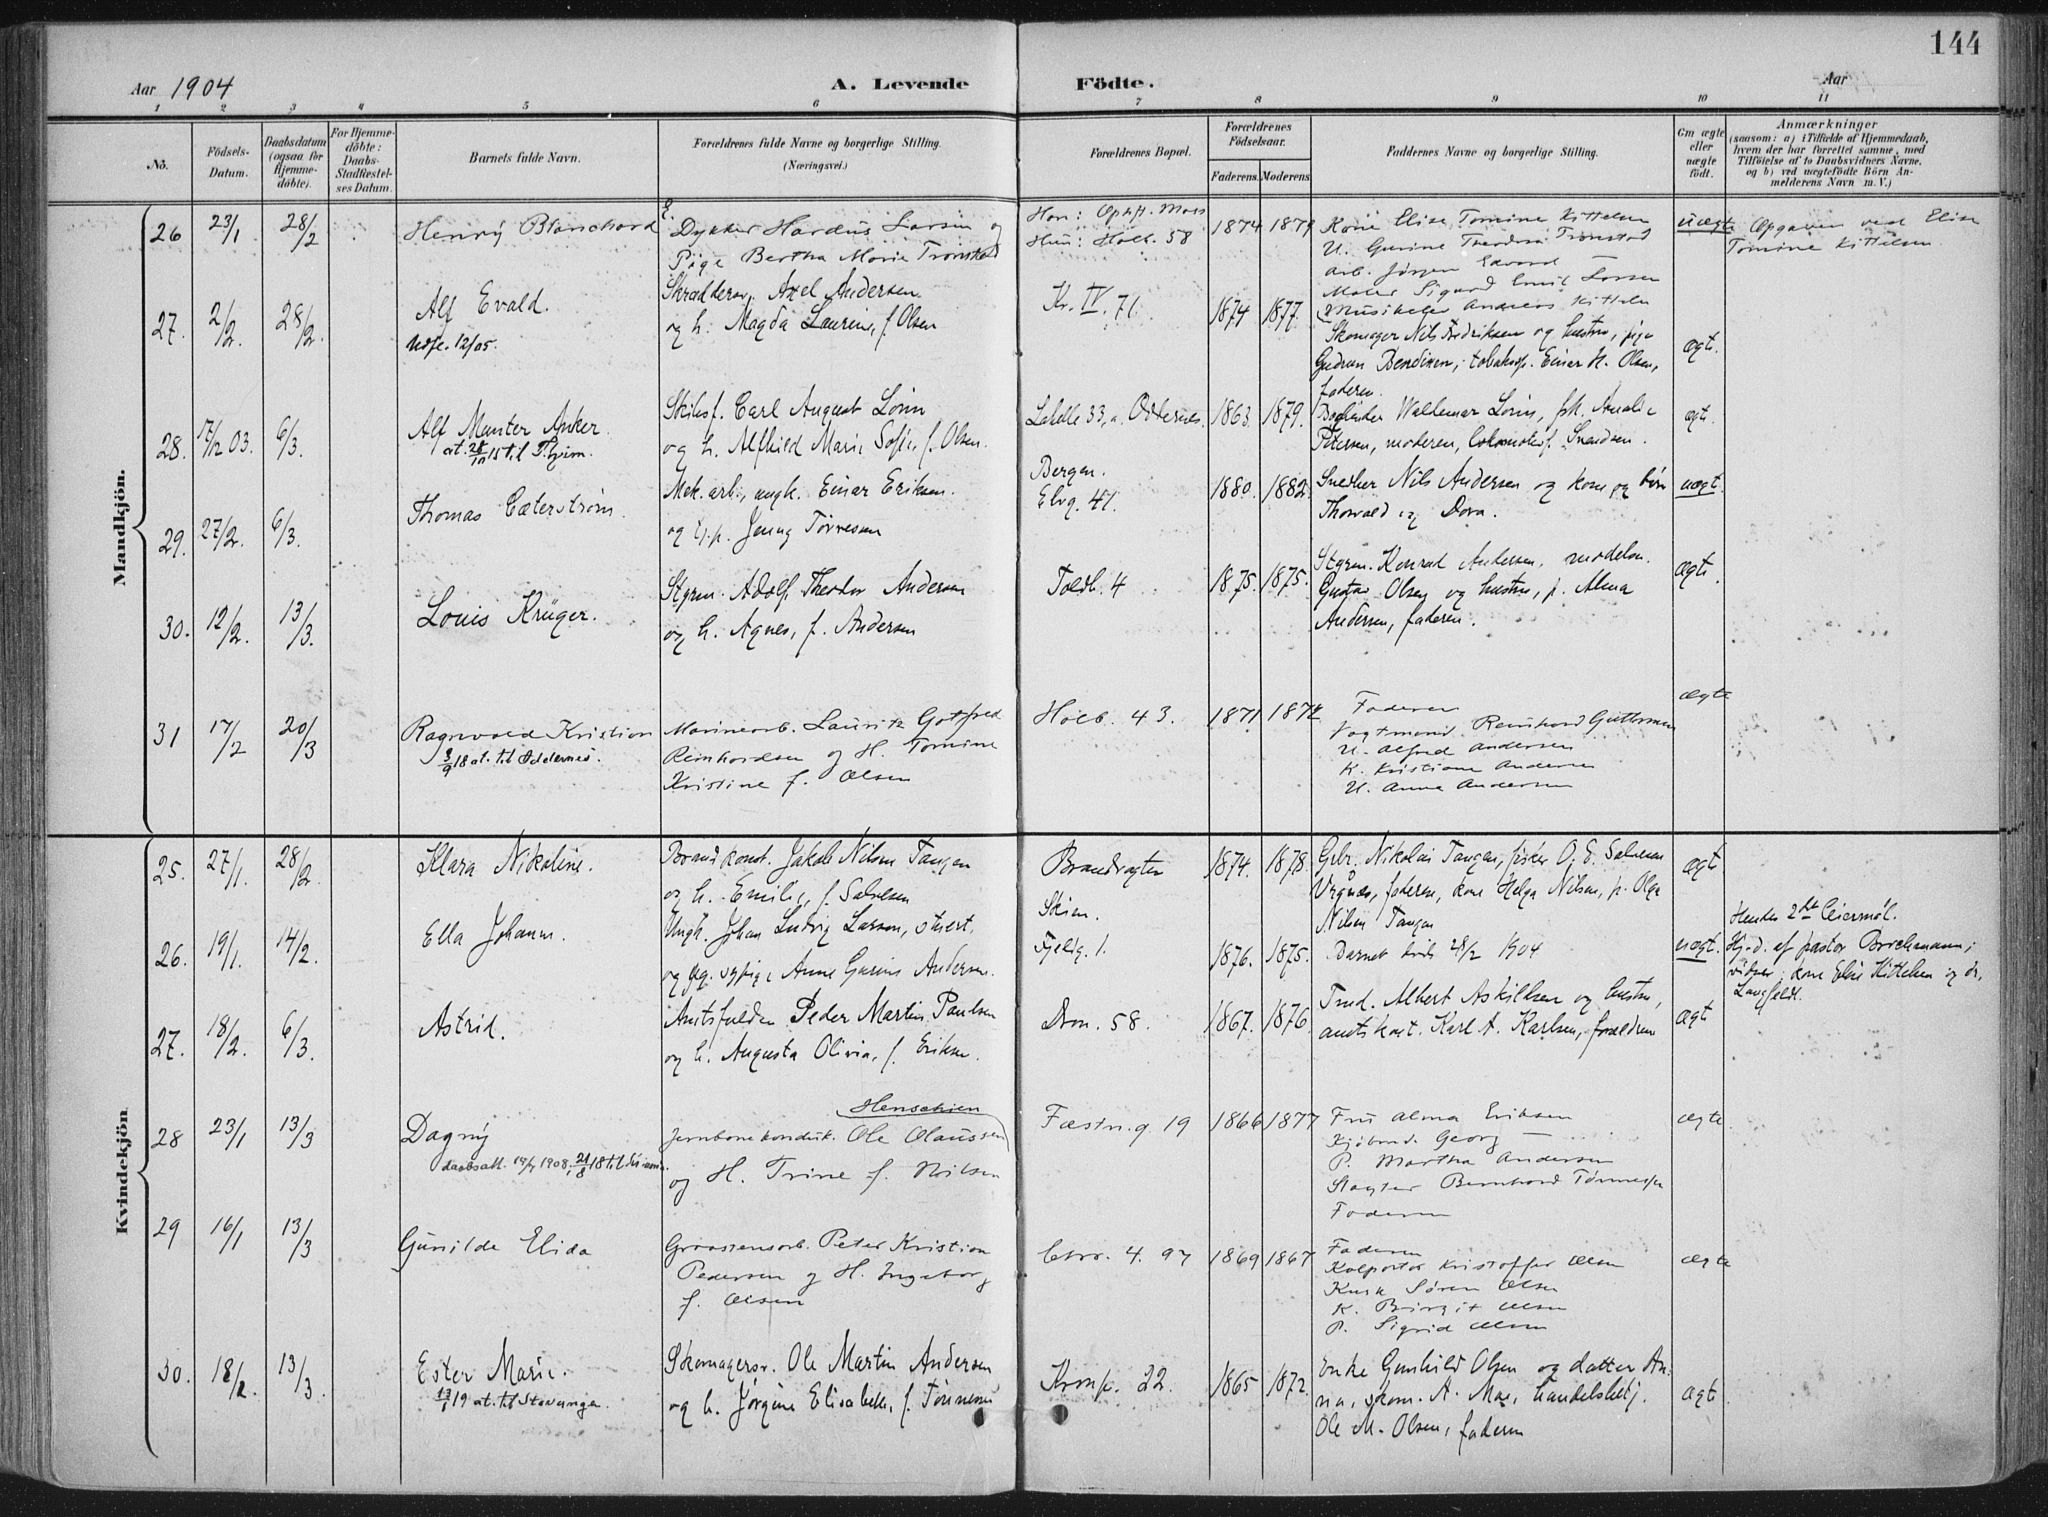 144
Aar 1904
A. Levende Födte.
Aar
1 2 3 4 5 6 7 8 9 10 11
No.
Födsels-
Datum.
Daabsdatum
(ogsaa for
Hjemme-
döbte).
For Hjemme-
döbte:
Daabs-
Stadfæstel-
ses Datum.
Barnets fulde Navn.
Forældrenes fulde Navne og borgerlige Stilling.
(Næringsvei.)
Forældrenes Bopæl.
Forældrenes
Födselsaar.
Faderens.
Moderens.
Faddernes Navne og borgerlige Stilling.
Om ægte
eller
uægte
födt.
Anmærkninger
(saasom: a) i Tilfælde af Hjemmedaab,
hvem der har forrettet samme, med
Tilföielse af to Daabsvidners Navne,
og b) ved uægtefödte Börn An-
melderens Navn m. V.)
Mandkjön.
26 23/1 28/2 Henry Blanchard
Dykker Hardus Larsen og
Pige Bertha Marie Tronstad
Han: Ophh. Moss
Hun: Holb. 58
1874 1879
Karie Elise Tomine Kittelsen
U. Gurine Theodora Tronstad
Arb. Jørgen Edvard
Maler Sigurd Emil Larsen
Musikeler Andreas Kittelsen
uægte
Opgaven ved Elise
Tomine Kittelsen
27. 2/2. 28/2. Alf Evald.
Udfl. 12/05.
Skræddersv. Axel Andersen
og h. Magda Laurine, f. Olsen
Kr. IV. 71.
1874 1877.
Skomager Nils Fredriksen og hustru, pige
Gudrun Bendixen, tobaksp. Einar K. Olsen,
faderen.
ægt.
28. 17/12 03. 6/3. Alf Munster Anker.
at. 28/10 15 til Thjem.
Skibsf. Carl August Lorin
og h. Alfhild Marie Sofie, f. Olsen.
Lahelle 33, a. Oddernes.
1863. 1879.
Bogbinder Waldemar Lorin, frk. Amalie
Petersen, moderen, lokomotivf. Svendsen.
ægt.
29. 27/2. 6/3. Thomas Cæterstrøm.
Mek. arb., ungk. Einar Eriksen.
og p. Jenny Tørresen
Bergen.
Elvg. 47.
1880. 1882.
Snedker Nils Andersen og kone og børn
Thorvald og Dora.
uægt.
30. 12/2. 13/3. Louis Krüger.
Styrm. Adolf Theodor Andersen
og h. Agnes, f. Andersen
Toldb. 4
1875. 1875.
Styrm. Konrad Andersen, modelsn.
Gustav Olsen og hustru, p. Alma
Andersen, faderen.
ægt.
31 17/2 20/3 Ragnvald Kristian
3/9 18 at. til Oddernes.
Marinearb. Lauritz Gotfred
Reinhardsen og H. Tomine
Kristine f. Olsen
Holb. 43.
1871 1872
Faderen
Vagtmand. Reinhard Guttormsen
U. Alfred Andersen
K. Kristiane Andersen
U. Anna Andersen
ægte
Kvindekjön.
25. 27/1. 28/2. Klara Nikoline.
Brandkonst. Jakob Nilsen Tangen
og h. Emilie, f. Salvesen
Brandvagten
1874. 1878.
Gbr. Nikolai Tangen, fisker O. E. Salvesen
faderen, kone Helga Nilsen, p. Olga
Nilsen Tangen
ægt
26. 19/1. 14/2. Ella Johanne.
Ungk. Johan Ludvig Larsen, stuert.
og sypige Anne Gurine Andersen.
Skien.
Fjeldg. 1.
1876. 1875.
Barnet døde 28/2 1904
uægt.
Hendes 2det Leiermål.
Hj.-d. af pastor Borchmann;
vidner: kone Elise Kittelsen og dr.
Langfeldt.
27. 18/2. 6/3. Astrid.
Amtsfuldm. Peder Martin Paulsen
og h. Augusta Olivia, f. Eriksen.
Dron. 58.
1867. 1876.
Tred. Albert Askildsen og hustru,
amtskont. Karl A. Karlsen, forældrene
ægt
28 23/1 13/3 Dagny
daabsatt. 14/4 1908. 21/8 18 til
Henschien
Jernbanekonduk. Ole Olaussen
og H. Trine f. Nilsen
Fæstn.g. 19
1866 1877
Fru Alma Eriksen
Kjøbmd. Georg —
P. Martha Andersen
Slagter Bernhard Tønnessen
Faderen
ægte
29 16/1 13/3 Gunilde Elida
Graastensarb. Peter Kristian
Pedersen og H. Ingeborg
f. Olsen
Ctvr. 4. 97
1869 1867
Faderen
Kolportør Kristoffer Olsen
Kusk Søren Olsen
K. Birgit Olsen
P. Sigrid Olsen
ægte
30. 18/2. 13/3. Ester Marie.
13/1 19 at. til Stavanger
Skomagersv. Ole Martin Andersen
og h. Jørgine Elisabeth, f. Tønnesen
Kronp. 22.
1865 1872.
Enke Gunhild Olsen og datter An-
na, skom. A. Moe, handelsbetj.
Ole M. Olsen, faderen
ægt.